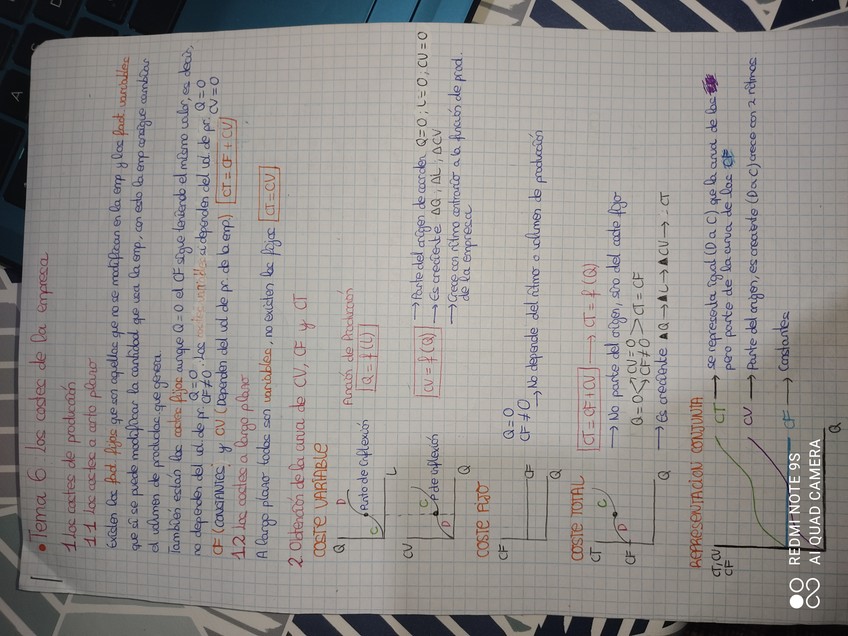 • Tema 6: Los costes de la empresa
1. Los costes de producción
1.1 Los costes a corto plazo
Existen los fact fijos que son aquellos que no se modifican en la emp y los fact. variables
que si se puede modificar la cantidad que usa la emp, con esto la emp consigue cambiar
el volumen de productos que genera
También están los costes fijos aunque Q=0 el CF sigue teniendo el mismo valor, es decir,
no dependen del vol de pr. Q=0 CF≠0. Los costes variables si dependen del vol de pr. Q=0 CV=0
CF (constantes) y CV (Dependen del vol de pr. de la emp.) CT = CF + CV
1.2 Los costes a largo plazo
A largo plazo todos son variables, no existen los fijos CT = CV
2. Obtención de la curva de CV, CF y CT
COSTE VARIABLE
Q
D
C
Punto de inflexión
L
Función de Producción
Q = f(L)
CV
C
D
Pto de inflexión
Q
CV = f(Q)
→ Parte del origen de coorden Q=0; L=0; CV=0
→ Es creciente ΔQ; ΔL; ΔCV
→ Crece con ritmo contrario a la función de prod.
de la empresa
COSTE FIJO
CF
CF
Q
Q=0
CF≠0
→ No depende del ritmo o volumen de producción
COSTE TOTAL
CT
CF
D
C
Q
CT = CF + CV → CT = f(Q)
→ No parte del origen, sino del coste fijo
Q=0 < CV=0 CF≠0 > CT = CF
→ Es creciente ▲Q → ▲L → ▲CV → : CT
REPRESENTACIÓN CONJUNTA
CT, CV
CF
CT → se representa igual (D a C) que la curva de los
pero parte de la curva de los CF
CV → Parte del origen, es creciente (D a C) crece con 2 ritmos
CF → Constantes
Q
REDMI NOTE 9S
AI QUAD CAMERA